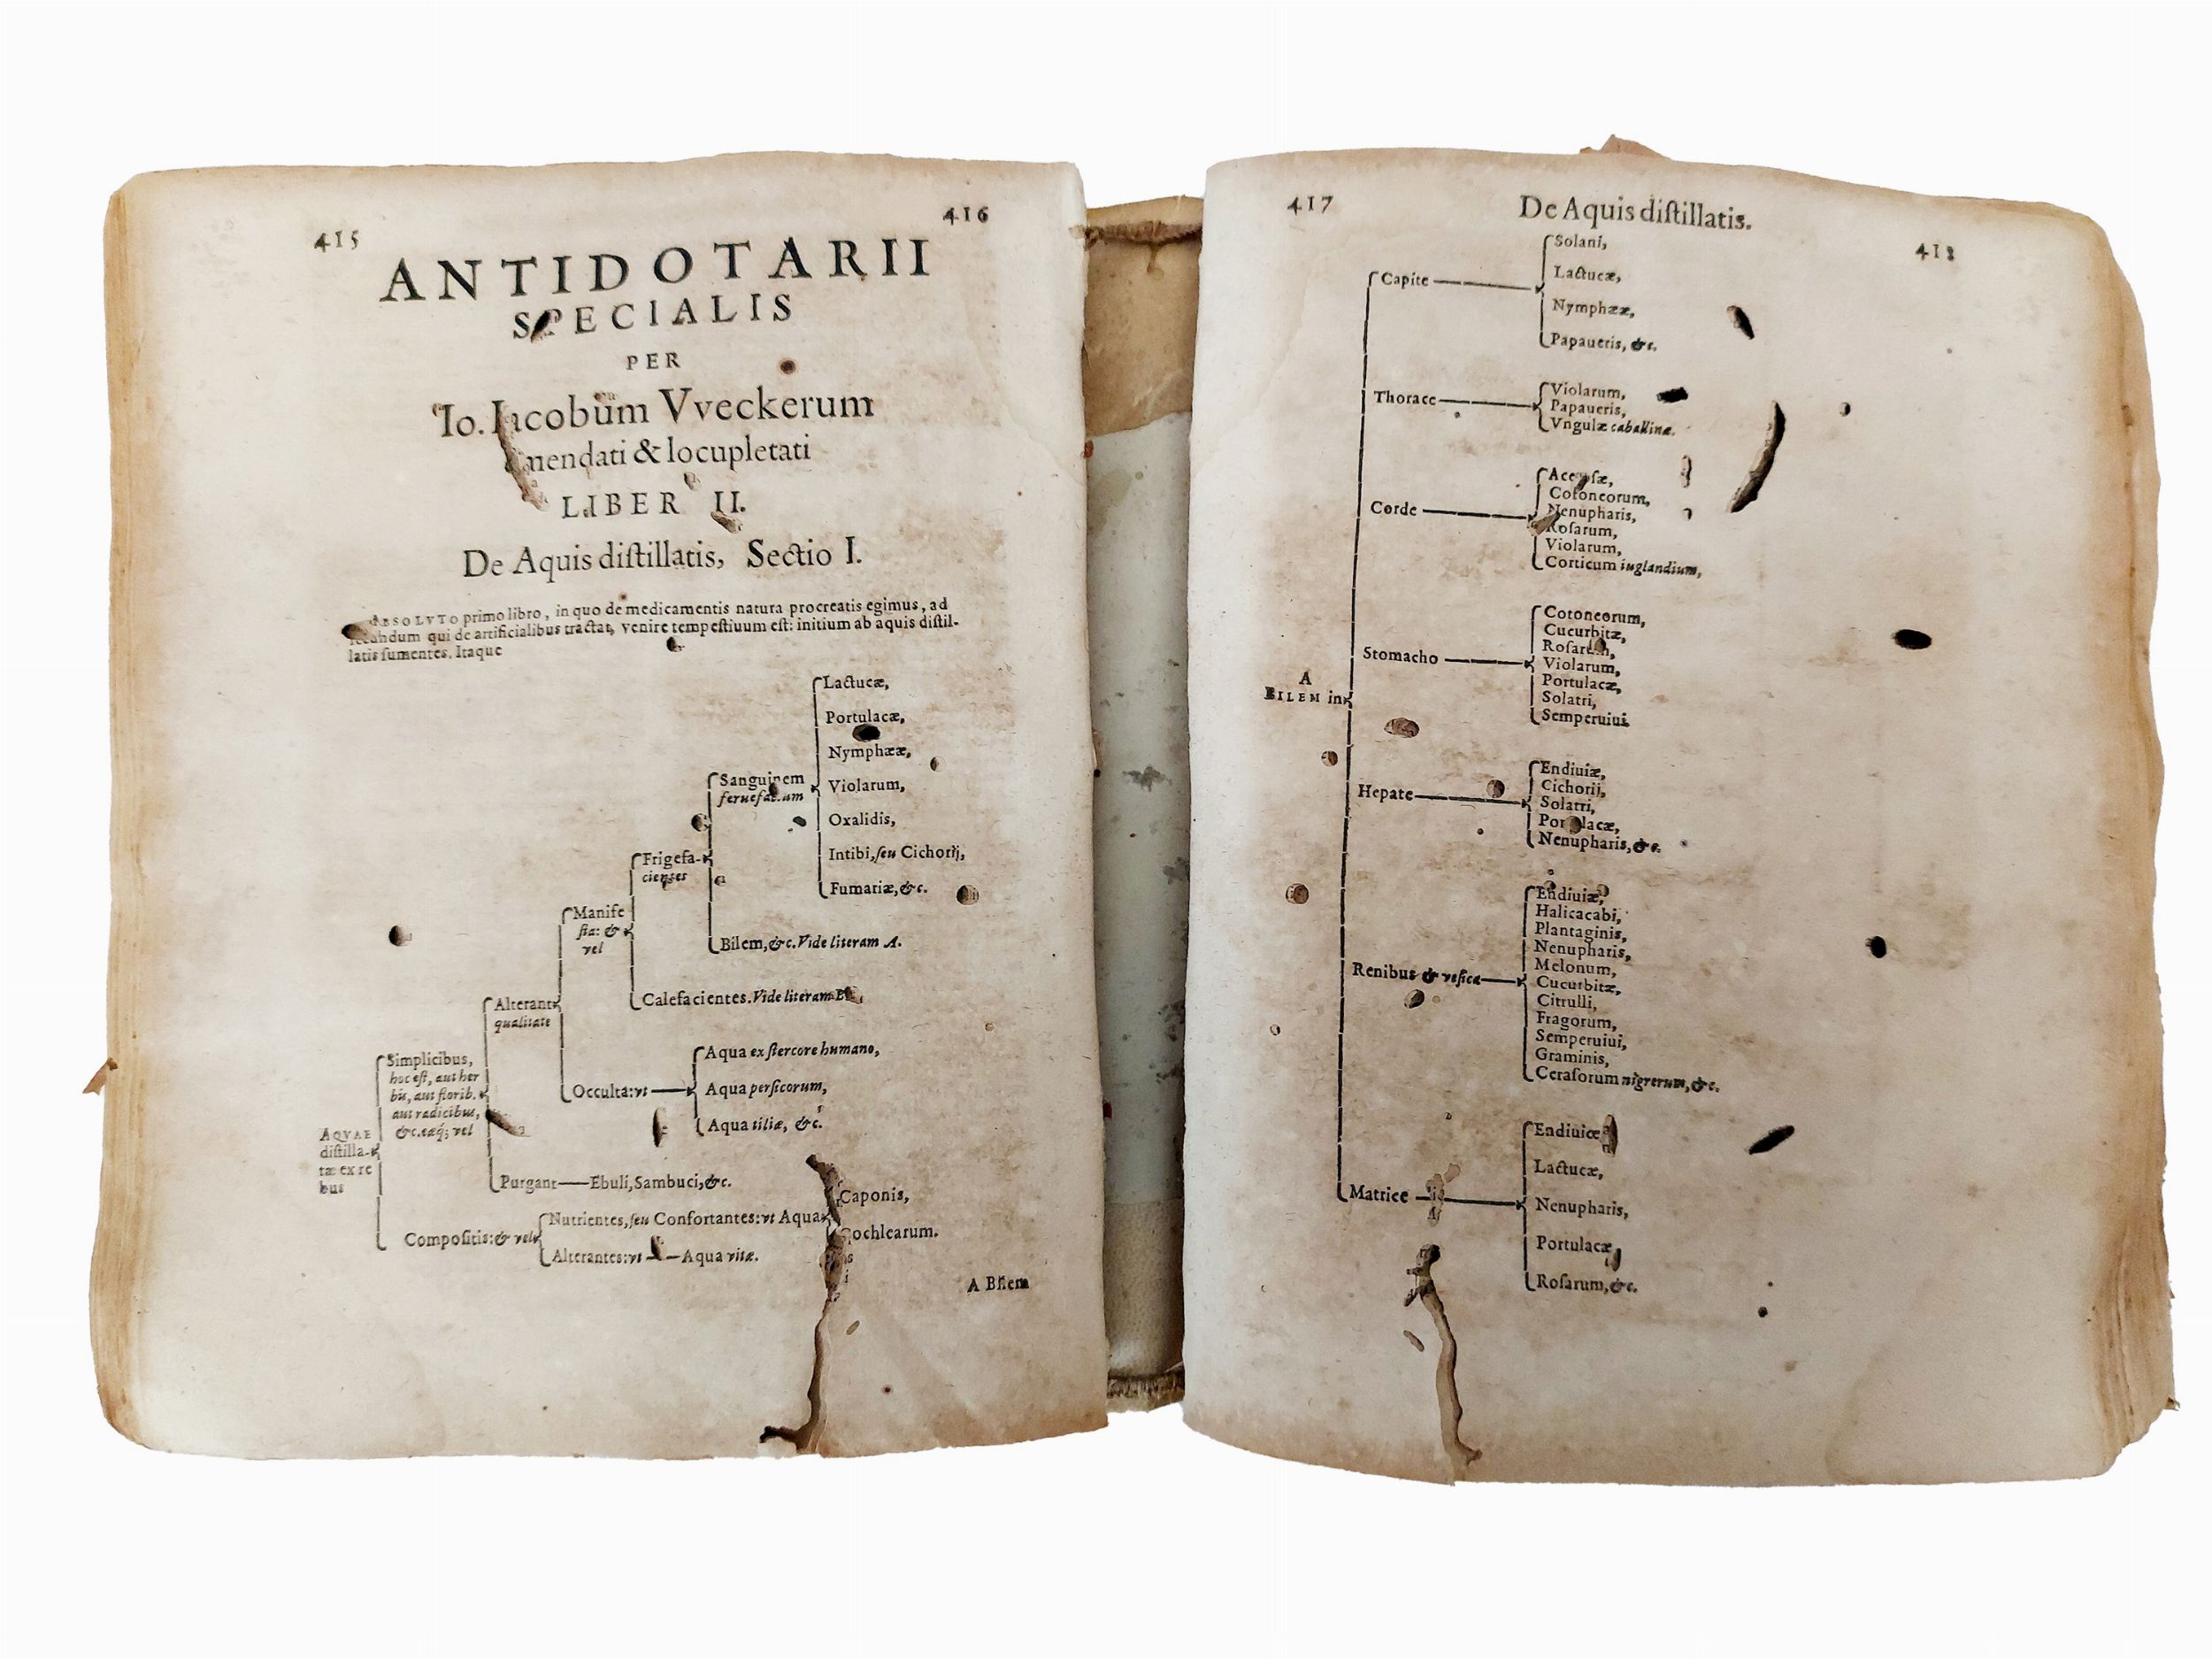 415
416
ANTIDOTARII
SPECIALIS
PER
Io. Iacobum Vveckerum
emendati & locupletati
LIBER II.
De Aquis diſtillatis, Sectio I.
ABSOLVTO primo libro, in quo de medicamentis natura procreatis egimus, ad
ſecundum qui de artificialibus tractat, venire tempeſtiuum eſt: initium ab aquis diſtil-
latis ſumentes. Itaque
AQVAE
diſtilla-
tæ ex re
bus
Simplicibus,
hoc eſt, aut her
bis, aut florib.
aut radicibus,
&c. eæq; vel
Alterant
qualitate
Manife
ſta: &
vel
Frigefa-
cientes
Sanguinem
feruefactum
Lactucæ,
Portulacæ,
Nymphææ,
Violarum,
Oxalidis,
Intibi, ſeu Cichorij,
Fumariæ, &c.
Bilem, &c. Vide literam A.
Calefacientes. Vide literam B
Occulta: vt
Aqua ex ſtercore humano,
Aqua perſicorum,
Aqua tiliæ, &c.
Purgant Ebuli, Sambuci, &c.
Compoſitis: & vel
Nutrientes, ſeu Confortantes: vt Aqua
Caponis,
Cochlearum.
Alterantes: vt Aqua vitæ.
A Bilem
417
De Aquis diſtillatis.
418
A
BILEM in
Capite
Solani,
Lactucæ,
Nymphææ,
Papaueris, &c.
Thorace
Violarum,
Papaueris,
Vngulæ caballinæ.
Corde
Acetoſæ,
Cotoneorum,
Nenupharis,
Roſarum,
Violarum,
Corticum iuglandium,
Stomacho
Cotoneorum,
Cucurbitæ,
Roſarum,
Violarum,
Portulacæ,
Solatri,
Semperuiui.
Hepate
Endiuiæ,
Cichorij,
Solatri,
Portulacæ,
Nenupharis, &c.
Renibus & veſica
Endiuiæ,
Halicacabi,
Plantaginis,
Nenupharis,
Melonum,
Cucurbitæ,
Citrulli,
Fragorum,
Semperuiui,
Graminis,
Ceraſorum nigrorum, &c.
Matrice
Endiuiæ
Lactucæ,
Nenupharis,
Portulacæ,
Roſarum, &c.